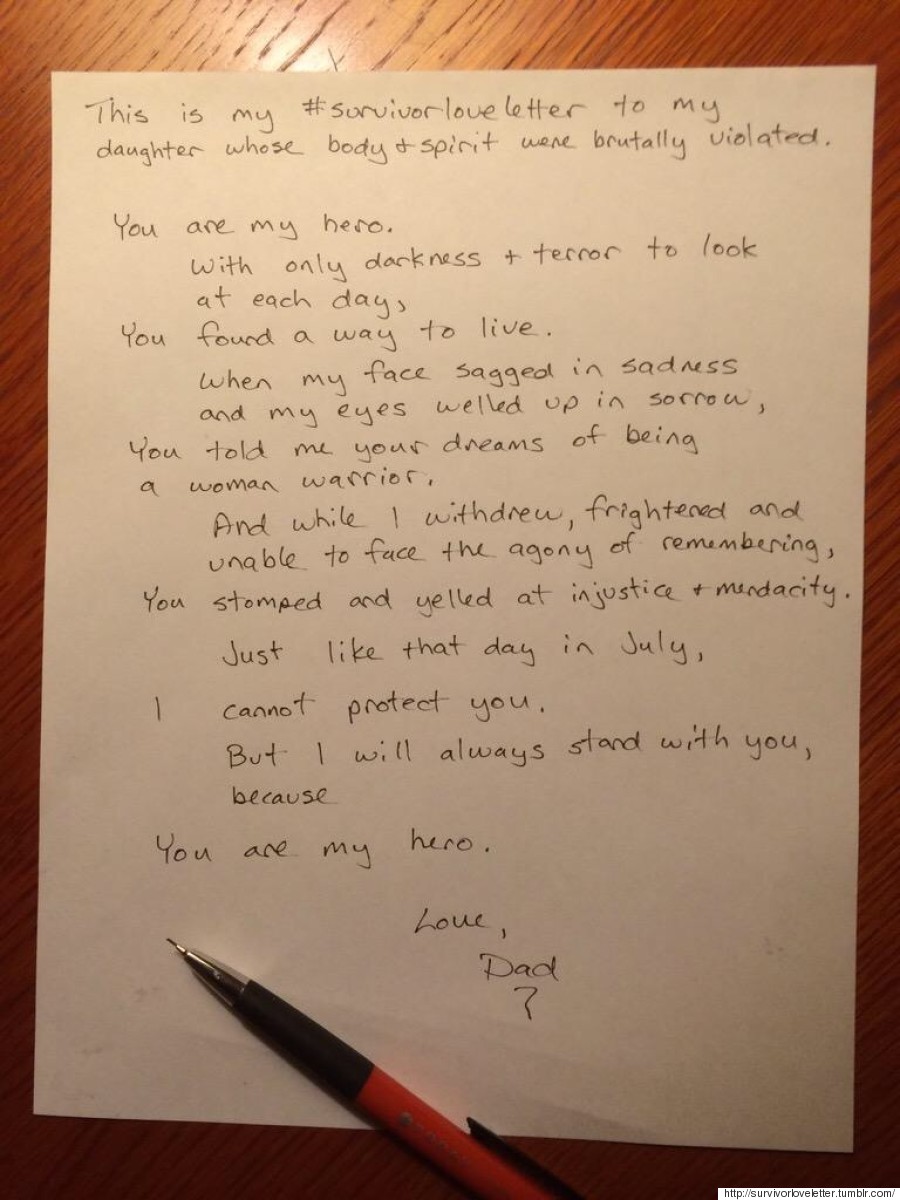 This is my #survivorloveletter to my
daughter whose body + spirit were brutally violated.
You are my hero.
With only darkness + terror to look
at each day,
You found a way to live.
When my face sagged in sadness
and my eyes welled up in sorrow,
You told me your dreams of being
a woman warrior.
And while I withdrew, frightened and
unable to face the agony of remembering,
You stomped and yelled at injustice + mendacity.
Just like that day in July,
I cannot protect you.
But I will always stand with you,
because
You are my hero.
Love,
Dad
http://survivorloveletter.tumblr.com/